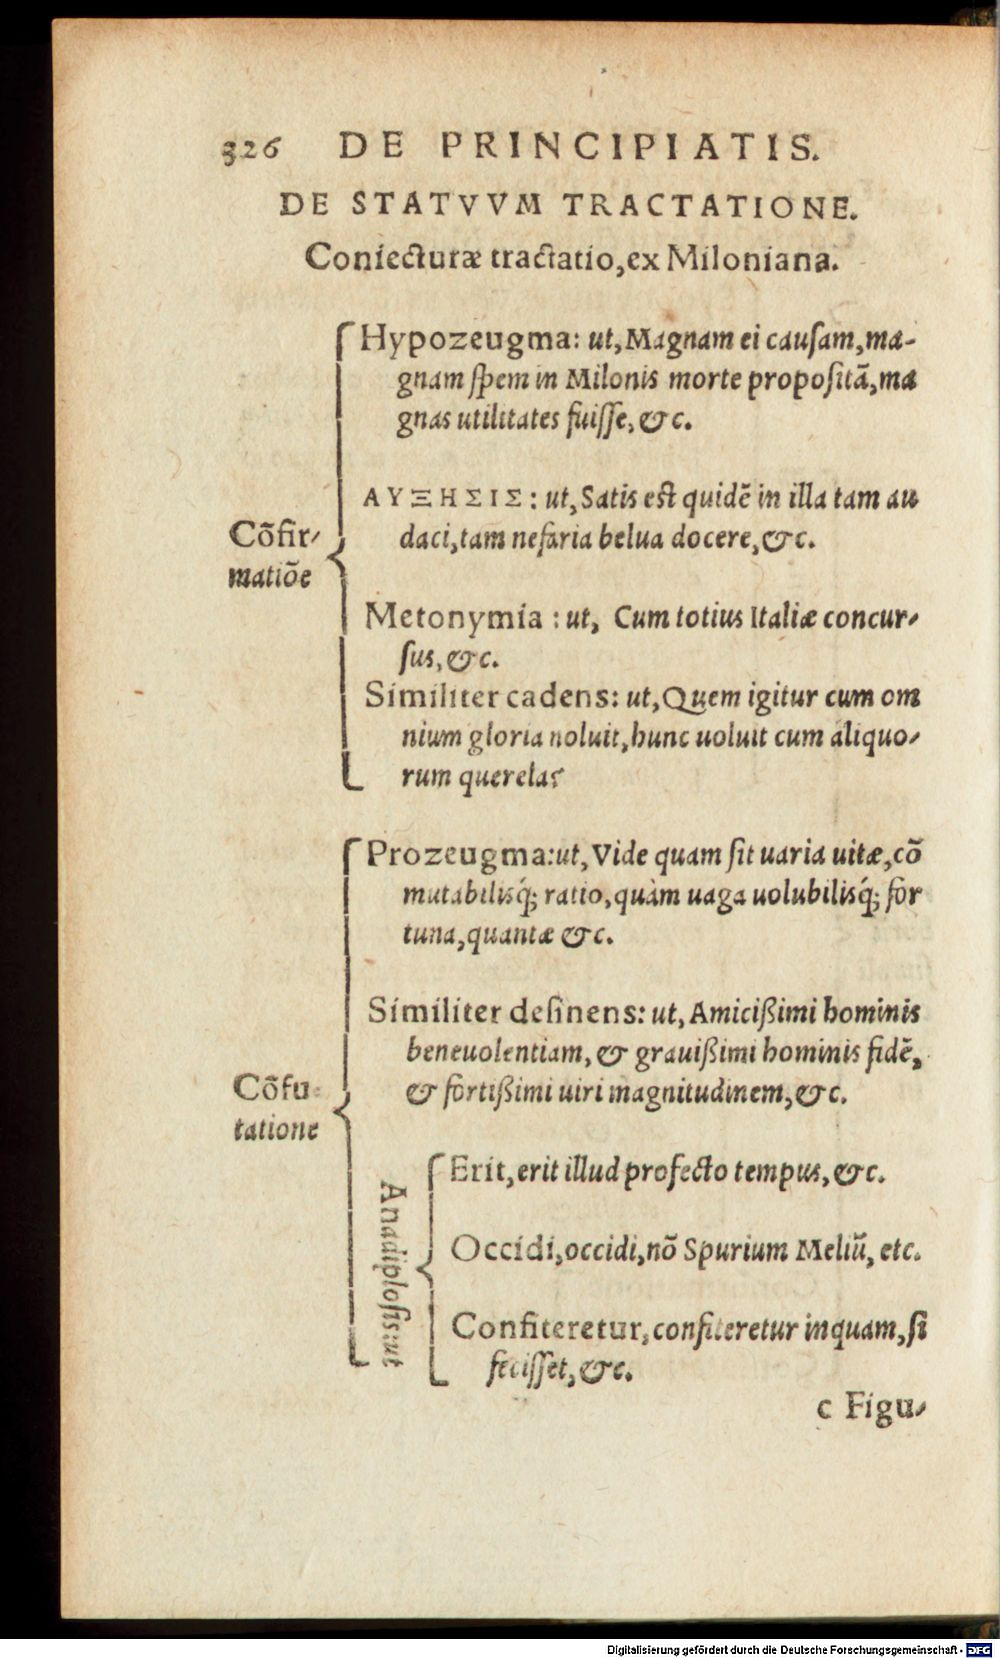 326 DE PRINCIPIATIS.
DE STATVVM TRACTATIONE.
Coniecturæ tractatio, ex Miloniana.
Cõfir-
matiõe
Hypozeugma: ut, Magnam ei cauſam, ma-
gnam ſpem in Milonis morte propoſitã, ma
gnas utilitates fuiſſe, &c.
ΑΥΞΗΣΙΣ: ut, Satis est quidẽ in illa tam au
daci, tam nefaria belua docere, &c.
Metonymía : ut, Cum totius Italiæ concur-
ſus, &c.
Similiter cadens: ut, Quem igitur cum om
nium gloria noluit, hunc uoluit cum aliquo-
rum querela?
Cõfu-
tatione
Prozeugma: ut, Vide quam ſit uaria uitæ, cõ
mutabilisq́; ratio, quàm uaga uolubilisq́; for
tuna, quantæ &c.
Similiter deſinens: ut, Amicißimi hominis
beneuolentiam, & grauißimi hominis fidẽ,
& fortißimi uiri magnitudinem, &c.
Anadiploſis: ut
Erit, erit illud profecto tempus, &c.
Occídi, occidi, nõ Spurium Meliũ, etc.
Confiteretur, confiteretur inquam, ſi
feciſſet, &c.
c Figu-
Digitalisierung gefördert durch die Deutsche Forschungsgemeinschaft - DFG